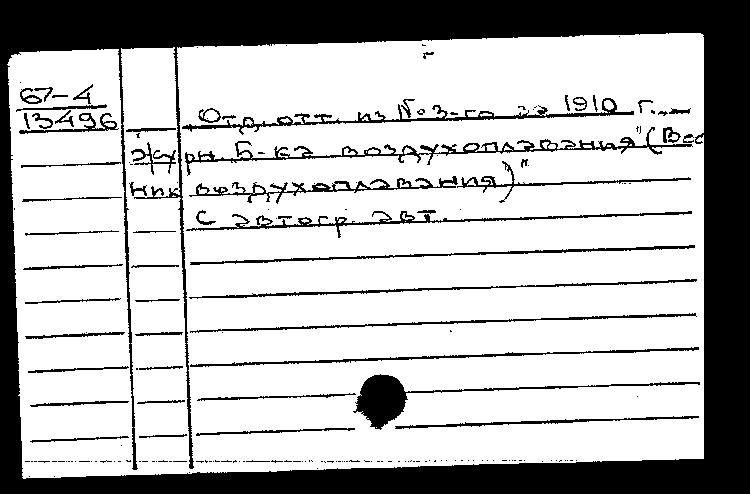 67-4
13496
Отд. отт. из № 3-го за 1910 г.
журн. Б-ка воздухоплавания" (Вес
ник воздухоплавания)"
С автогр. авт.